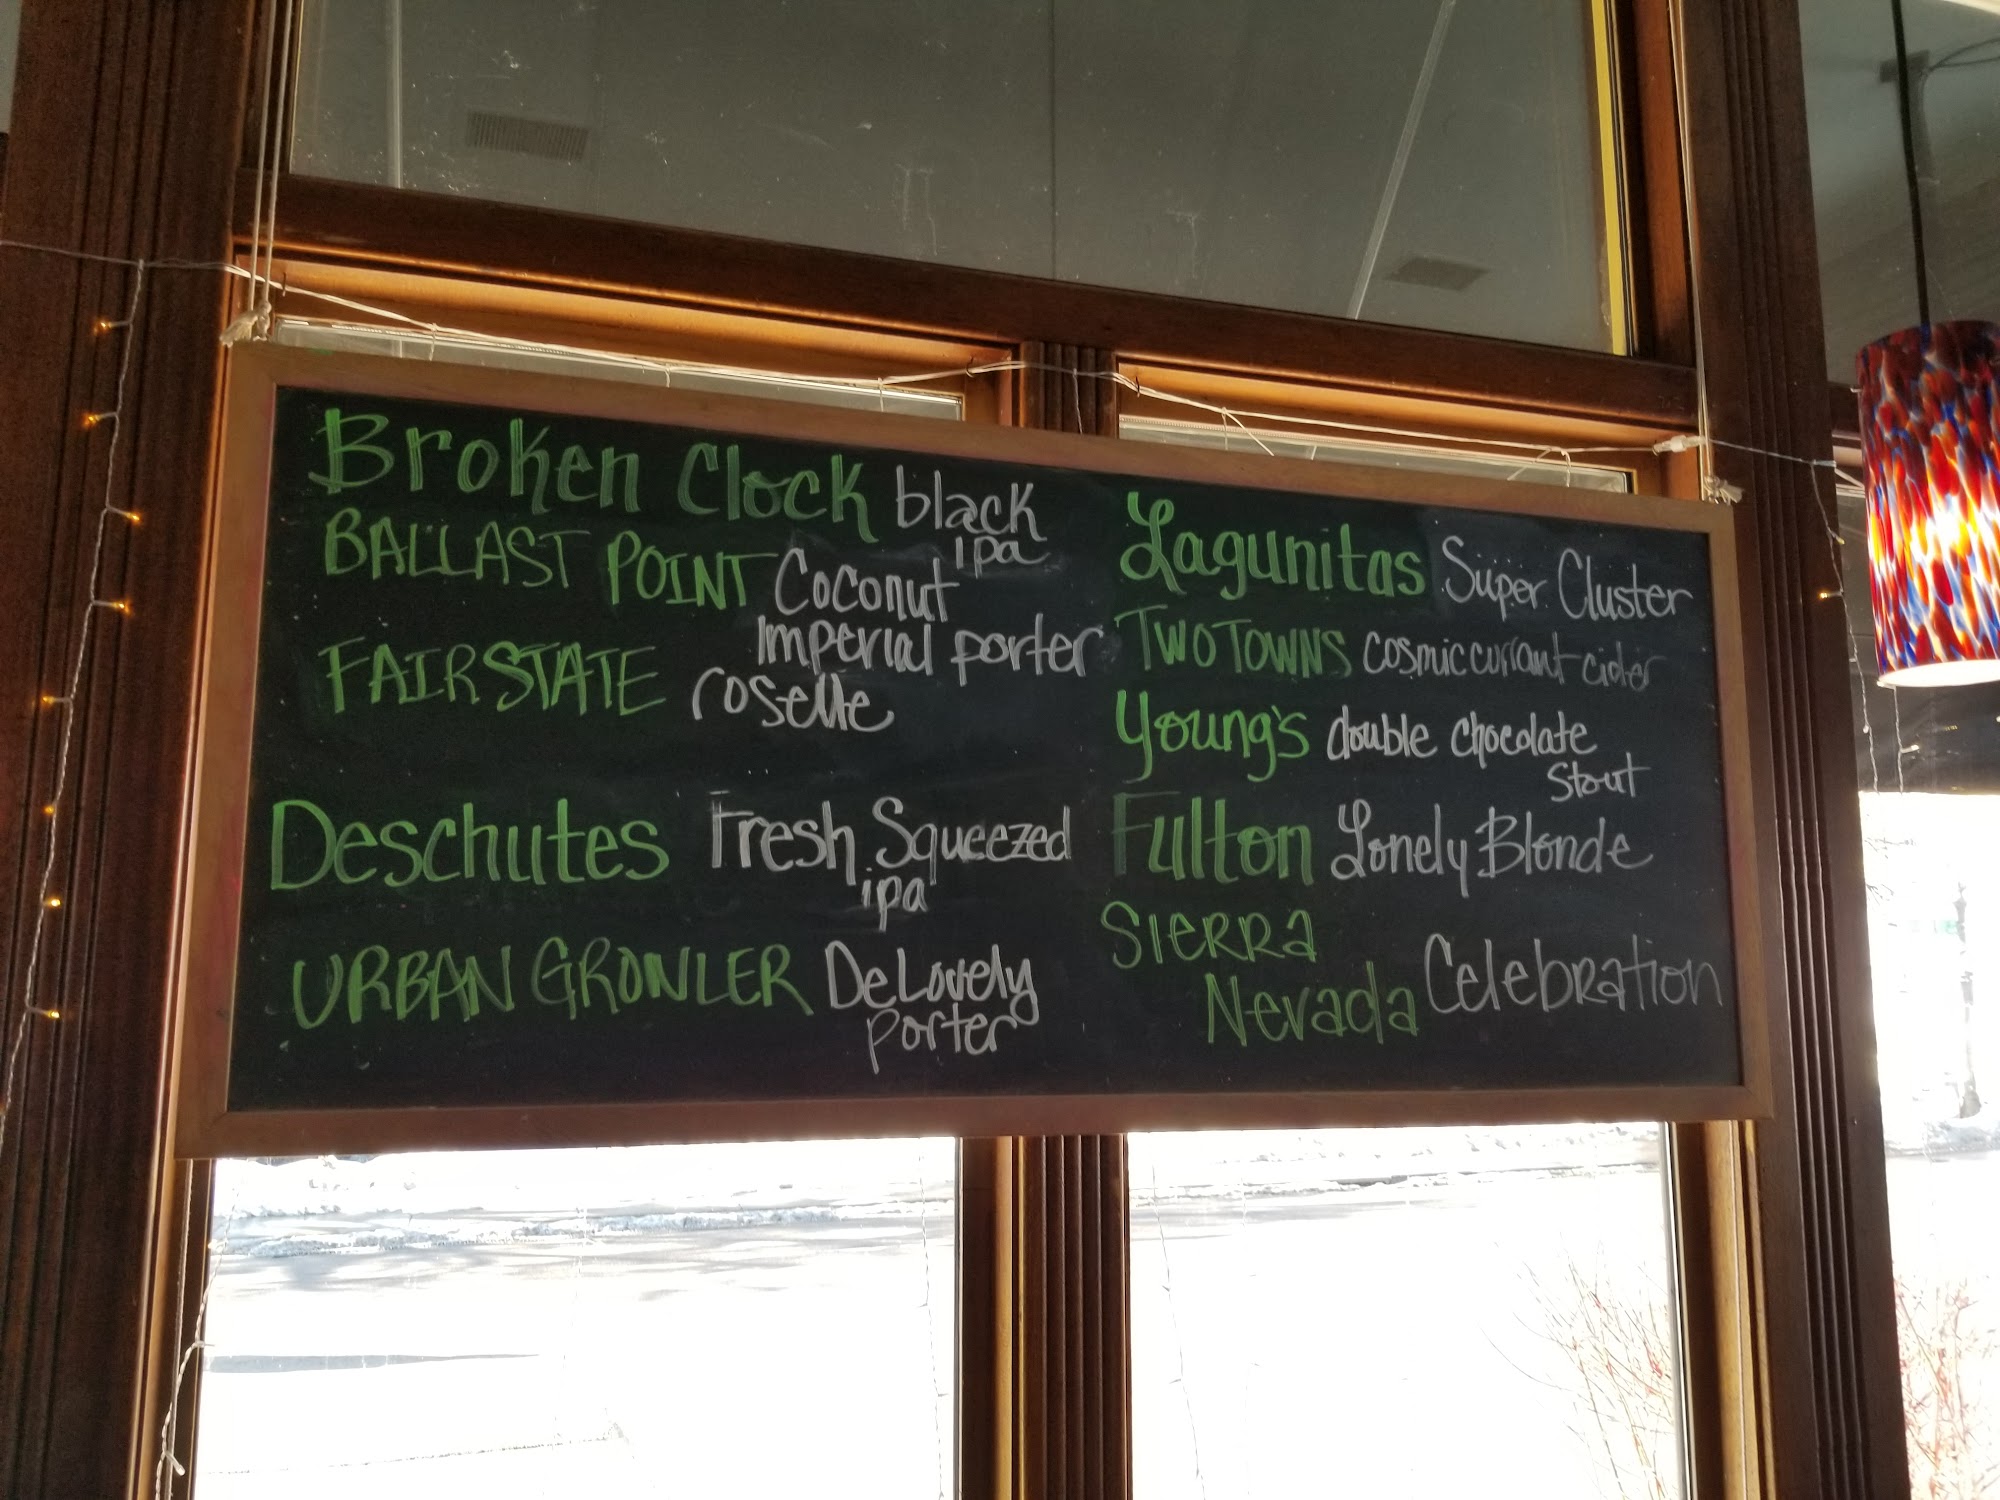 Broken Clock black
ipa
BALLAST POINT Coconut
Imperial porter
FAIR STATE roselle
Deschutes Fresh Squeezed
ipa
URBAN GROWLER DeLovely
porter
Lagunitas Super Cluster
TWO TOWNS cosmic currant cider
Young's double chocolate
Stout
Fulton Lonely Blonde
SIERRA
Nevada Celebration